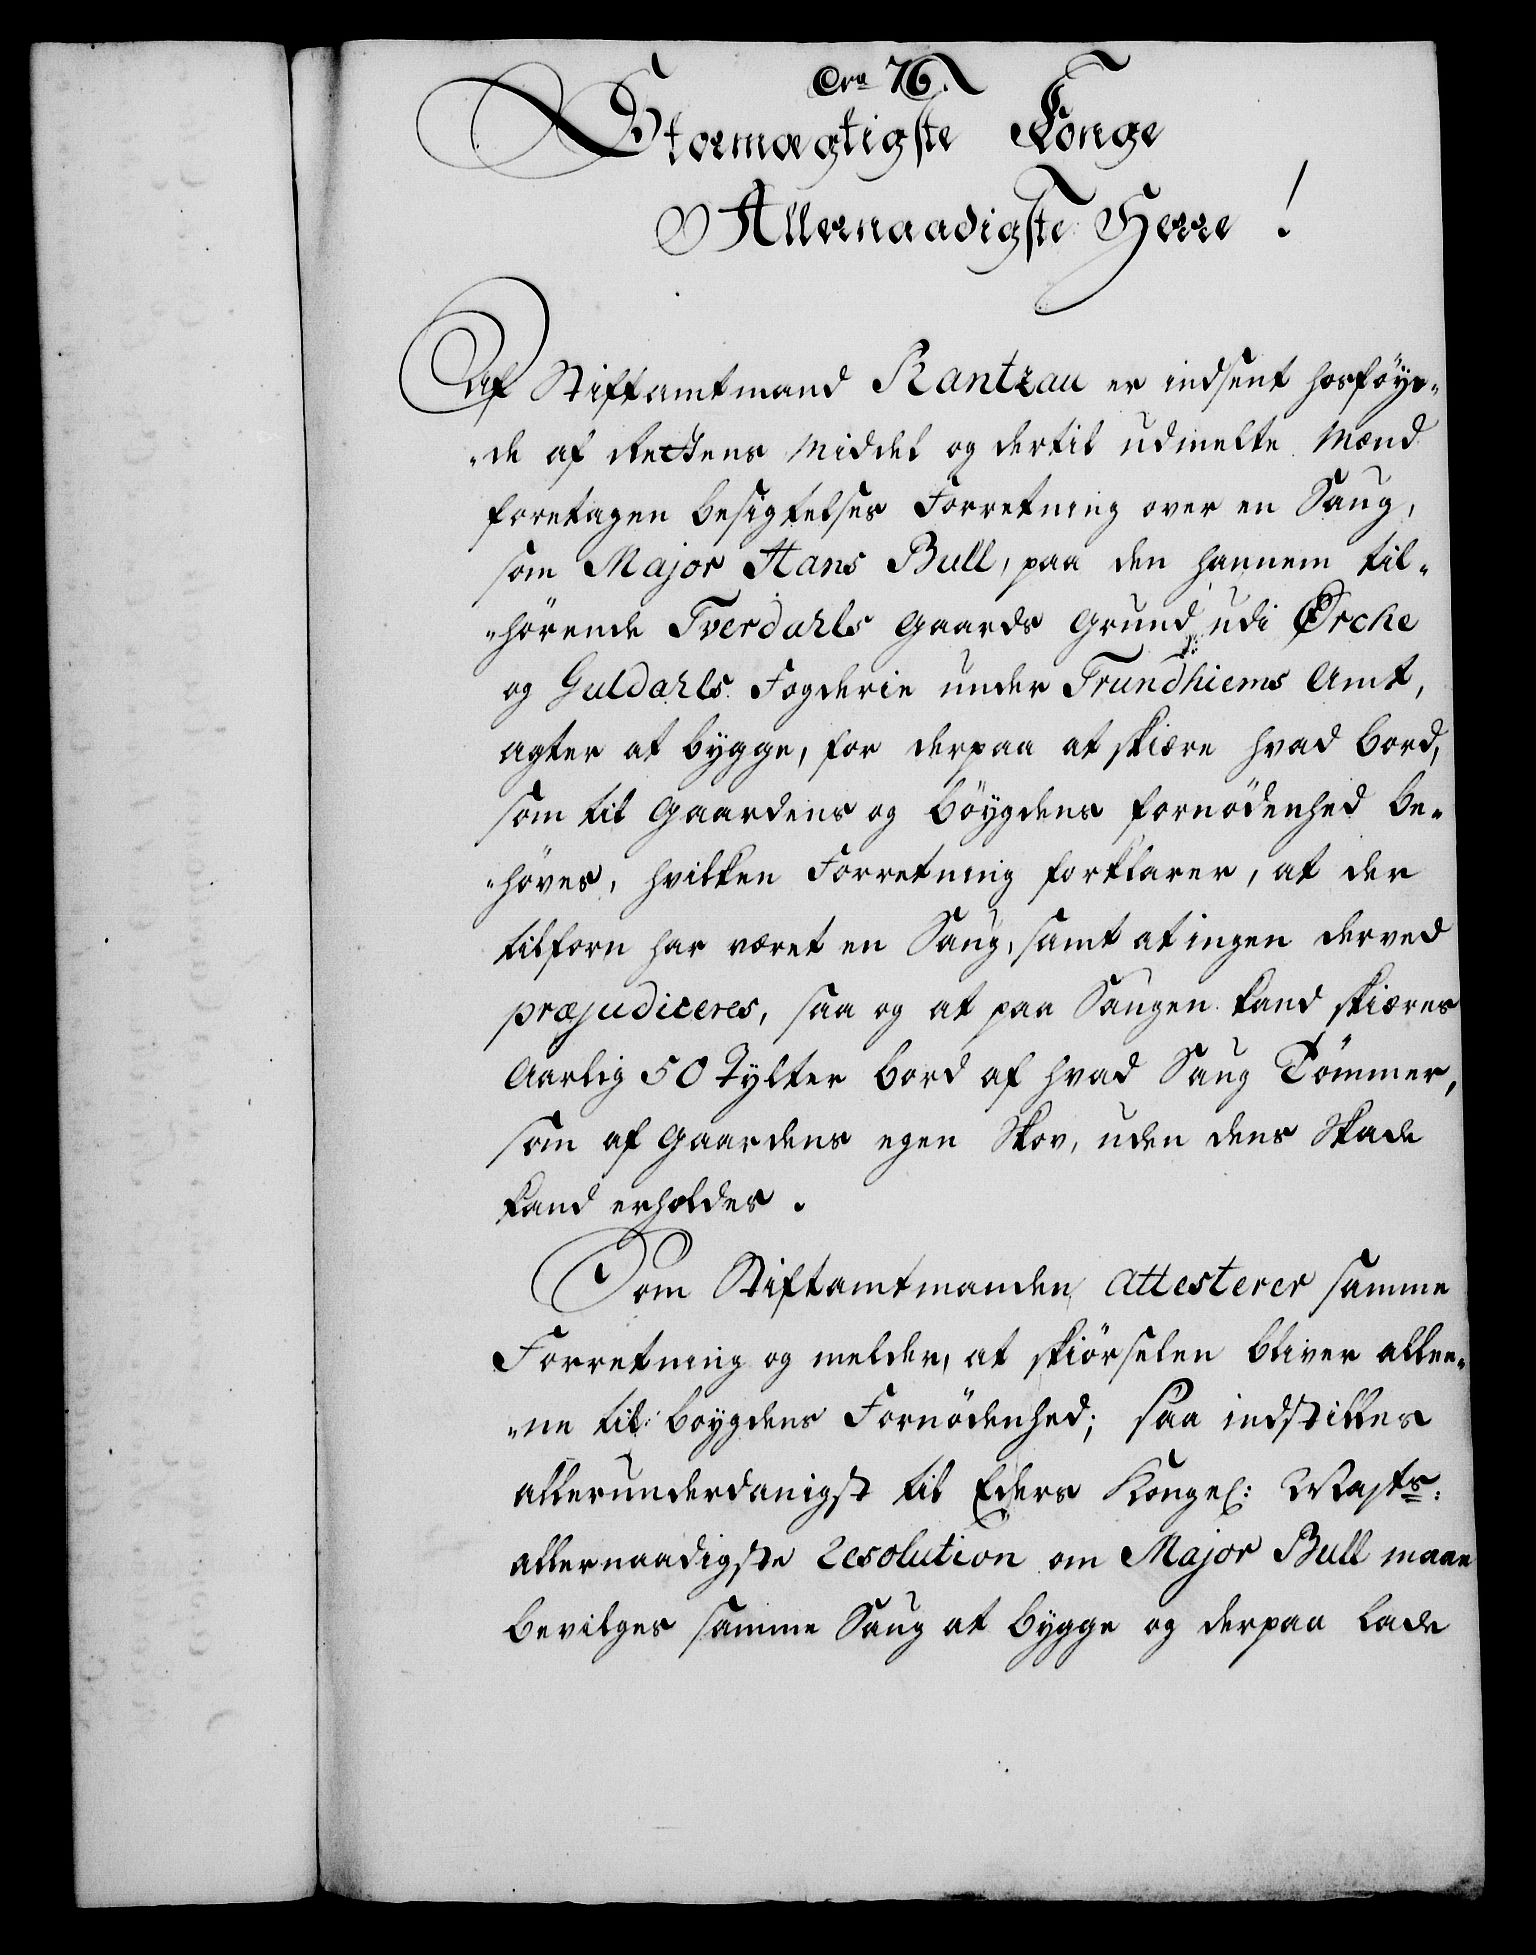 Nrᵒ 76.
Stormægtigste Konge
Allernaadigste Herre!
Af Stiftamtmand Rantzau er indsent hosföye„
„de af Rettens Middel og dertil udmelte Mænd
foretagen Besigtelses Forretning over en Saug,
som Major Hans Bull, paa den hannem til„
„hörende Tverdahls Gaards Grund udi Ørche
og Guldahls Fogderie under Trundhiems Amt,
agter at bygge, for derpaa at skiære hvad Bord,
som til Gaardens og Böygdens fornödenhed be„
„höves, hvilken Forretning forklarer, at der
tilforn har været en Saug, samt at ingen derved
præjudiceres, saa og at paa Saugen kand skiæres
Aarlig 50 Tylter Bord af hvad Saug Tömmer,
som af Gaardens egen Skov, uden dens Skade
kand erholdes.
Som Stiftamtmanden attesterer samme
Forretning og melder, at skiörselen bliver allee„
„ne til Böygdens Fornödenhed; saa indstilles
allerunderdanigst til Eders Kongel: Mayts:
allernaadigste Resolution om Major Bull maae
bevilges samme Saug at bygge og derpaa lade